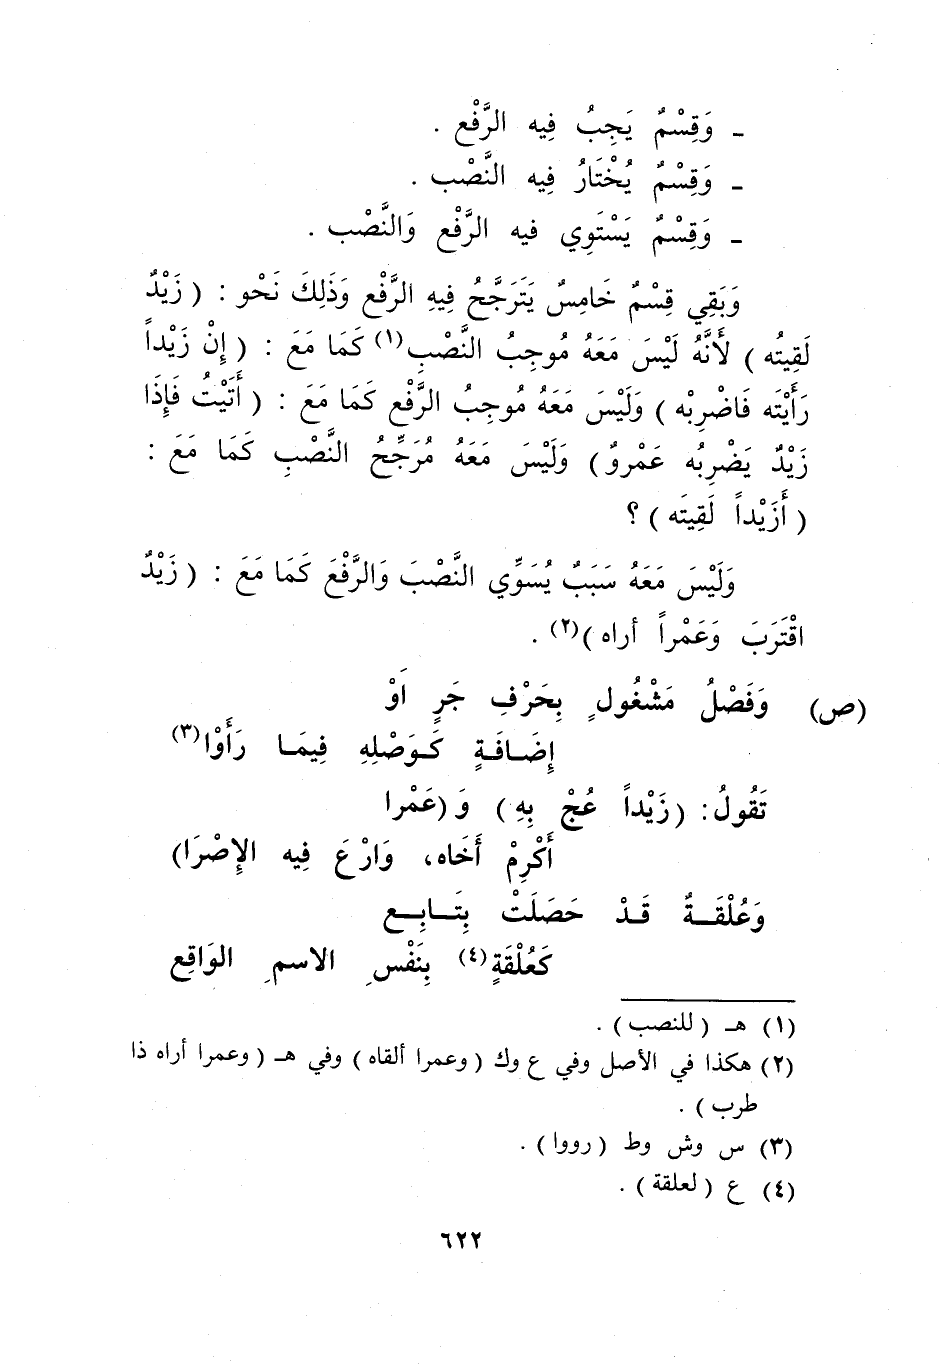 ـ وَقِسْمٌ يَجِبُ فِيه الرَّفْع .
ـ وَقِسْمٌ يُخْتَارُ فِيه النَّصْب .
ـ وَقِسْمٌ يَسْتَوِي فيه الرَّفْع وَالنَّصْب .
وَبَقِي قِسْمٌ خَامِسٌ يَتَرَجَّحُ فِيهِ الرَّفْع وَذَلِكَ نَحْو : ( زَيْدٌ
لَقِيتُه ) لأَنَّهُ لَيْسَ مَعَهُ مُوجِبُ النَّصْبِ(١) كَمَا مَعَ : ( إِنْ زَيْداً
رَأَيْتَه فَاضْرِبْه ) وَلَيْسَ مَعَهُ مُوجِبُ الرَّفْعِ كَمَا مَعَ : ( أَتَيْتُ فَإِذَا
زَيْدٌ يَضْرِبُه عَمْروٌ ) وَلَيْسَ مَعَهُ مُرَجِّحُ النَّصْبِ كَمَا مَعَ :
( أَزَيْداً لَقِيتَه ) ؟
وَلَيْسَ مَعَهُ سَبَبٌ يُسَوِّي النَّصْبَ وَالرَّفْعَ كَمَا مَعَ : ( زَيْدٌ
اقْتَرَبَ وَعَمْراً أراه )(٢) .
(ص) وَفَصْلُ مَشْغُولٍ بِحَرْفِ جَرٍ اَوْ
إِضَـافَـةٍ كَـوَصْلِهِ فِيمَـا رَأَوْا(٣)
تَقُولُ: ( زَيْداً عُجْ بِهِ ) وَ (عَمْرا
أَكْرِمْ أَخَاه، وَارْعَ فِيه الإِصْرَا)
وَعُلْقَــةٌ قَــدْ حَصَلَتْ بِتَــابِــع
كَعُلْقَةٍ(٤) بِنَفْسِ الاسمِ الوَاقِع
(١) هـ ( للنصب ) .
(٢) هكذا في الأصل وفي ع وك ( وعمرا ألقاه ) وفي هـ ( وعمرا أراه ذا
طرب ) .
(٣) س وش وط ( رووا ) .
(٤) ع ( لعلقة ) .
٦٢٢